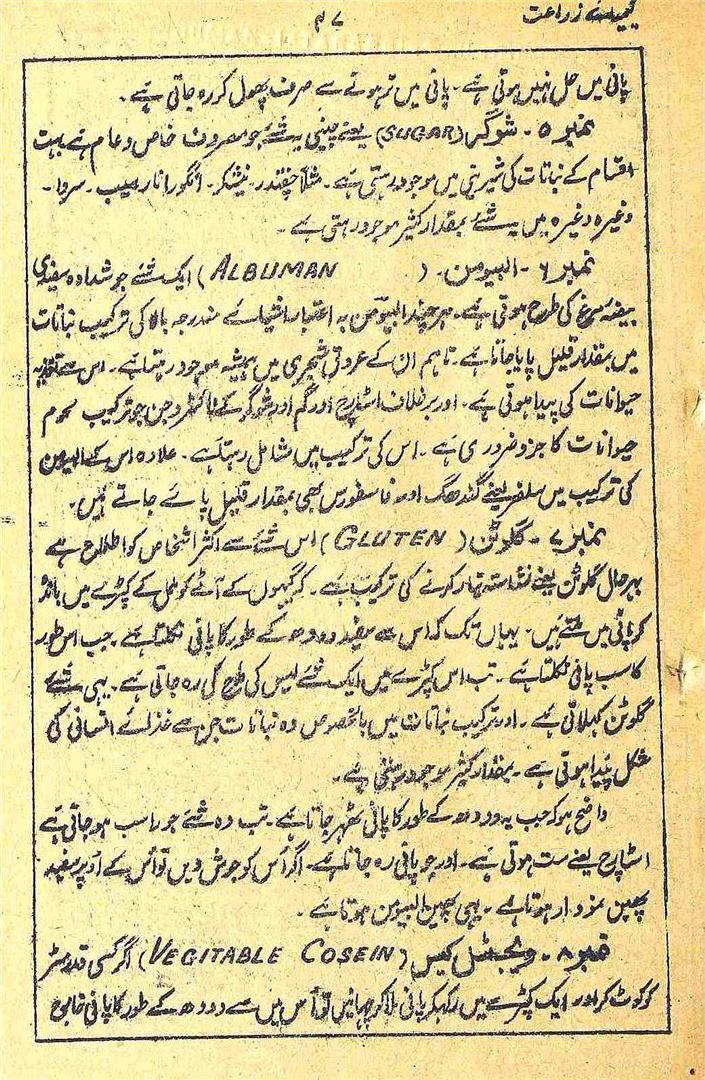 کیمیائے زراعت
۴۷
پانی میں حل نہیں ہوتی ہے۔ پانی میں تر ہونے سے صرف پھول کر رہ جاتی ہے۔
نمبر ۵۔ شوگر (SUGAR) یعنے چینی یہ شئے جو معروف خاص و عام ہے بہت
اقسام کے نباتات کی شیرینی میں موجود رہتی ہے۔ مثلاً چقندر۔ نیشکر۔ انگور انار سیب۔ سردا۔
وغیرہ وغیرہ میں یہ شئے بمقدار کثیر موجود رہتی ہے۔
نمبر ۶۔ البیومن۔ (ALBUMAN) ایک شئے جو شدادہ سفیدی
بیضہ مرغ کی طرح ہوتی ہے۔ ہر چند البیومن بہ اعتبار اشیائے مندرجہ بالا کی ترکیب نباتات
میں بمقدار قلیل پایا جاتا ہے۔ تاہم ان کے عروق شجری میں ہمیشہ موجود رہتا ہے۔ اس سے تغذیہ
حیوانات کی پیدا ہوتی ہے۔ اور برخلاف اسٹارچ اور گم اور شوگر کے نائٹروجن جو ترکیب لحوم
حیوانات کا جزو ضروری ہے۔ اس کی ترکیب میں شامل رہتا ہے۔ علاوہ اس کے البیومن
کی ترکیب میں سلفر یعنے گندھک اور فاسفورس بھی بمقدار قلیل پائے جاتے ہیں۔
نمبر ۷۔ گلوٹن (GLUTEN) اس شئے سے اکثر اشخاص کو اطلاع ہے
بہر حال گلوٹن یعنے نشاستہ تیار کرنے کی ترکیب ہے۔ کہ گیہوں کے آٹے کو ململ کے کپڑے میں باندھ
کر پانی میں ملتے ہیں۔ یہاں تک کہ اس سے سفید دودھ کے طور کا پانی نکلتا ہے۔ جب اس طور
کا سب پانی نکلتا ہے۔ تب اس کپڑے میں ایک شئے لیس کی طرح کی رہ جاتی ہے۔ یہی شئے
گلوٹن کہلاتی ہے۔ اور ترکیب نباتات میں بالخصوص وہ نباتات جن سے غذائے انسانی کی
شکل پیدا ہوتی ہے۔ بمقدار کثیر موجود رہتی ہے۔
واضح ہو کہ جب یہ دودھ کے طور کا پانی ٹھہر جاتا ہے۔ تب وہ شئے جو راسب ہو جاتی ہے
اسٹارچ یعنے ست ہوتی ہے۔ اور جو پانی رہ جاتا ہے۔ اگر اس کو جوش دیں تو اس کے اوپر سفید
پھین نمودار ہوتا ہے۔ یہی پھین البیومن ہوتا ہے۔
نمبر ۸۔ ویجٹبل کیسن (VEGITABLE COSEIN) اگر کسی قدر مٹر
کو کوٹ کر اور ایک کپڑے میں رکھکر پانی ملا کر چھانیں تو اس میں سے دودھ کے طور کا پانی خارج